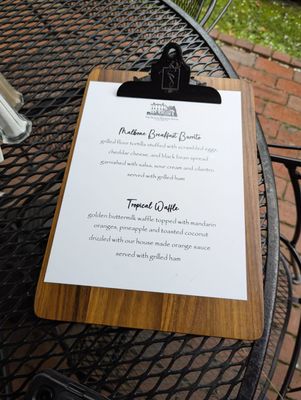 Malbone Breakfast Burrito
grilled flour tortilla stuffed with scrambled eggs,
cheddar cheese, and black bean spread
garnished with salsa, sour cream and cilantro
served with grilled ham
Tropical Waffle
golden buttermilk waffle topped with mandarin
oranges, pineapple and toasted coconut
drizzled with our house made orange sauce
served with grilled ham